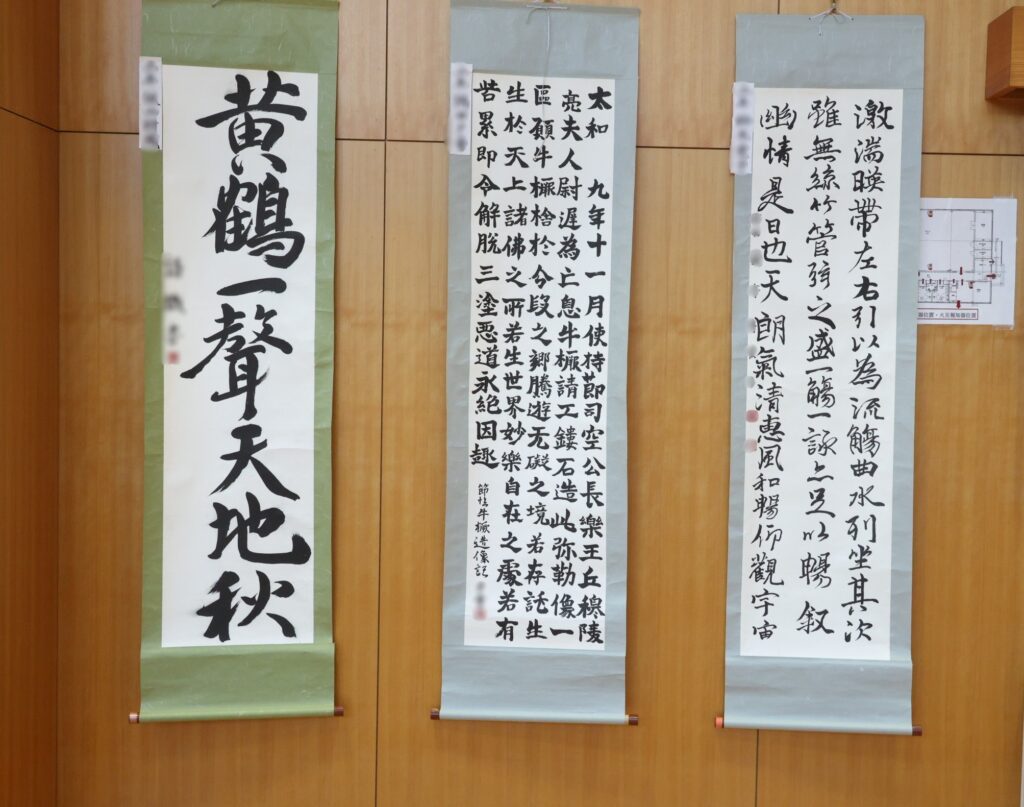 激湍暎帶左右引以為流觴曲水列坐其次
雖無絲竹管弦之盛一觴一詠亦足以暢叙
幽情是日也天朗氣清惠風和暢仰觀宇宙
太和九年十一月使持節司空公長樂王丘穆陵
亮夫人尉遲為亡息牛橛請工鏤石造此弥勒像一
區願牛橛捨於分段之鄉騰遊无礙之境若存託生
生於天上諸佛之所若生世界妙樂自在之處若有
苦累即令解脫三塗惡道永絶因趣
節臨牛橛造像記
黄鶴一聲天地秋